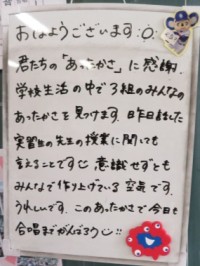 おはようございます:0:
君たちの「あったかさ」に感謝.
学校生活の中で3組のみんなの
あったかさを見つけます. 昨日話した
実習生の先生の授業に関しても
言えることです 意識せずとも
みんなで作り上げている空気です.
うれしいです. このあったかさで今日も
合唱までがんばろう!!